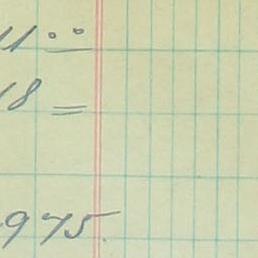 11 00
18 =
975.